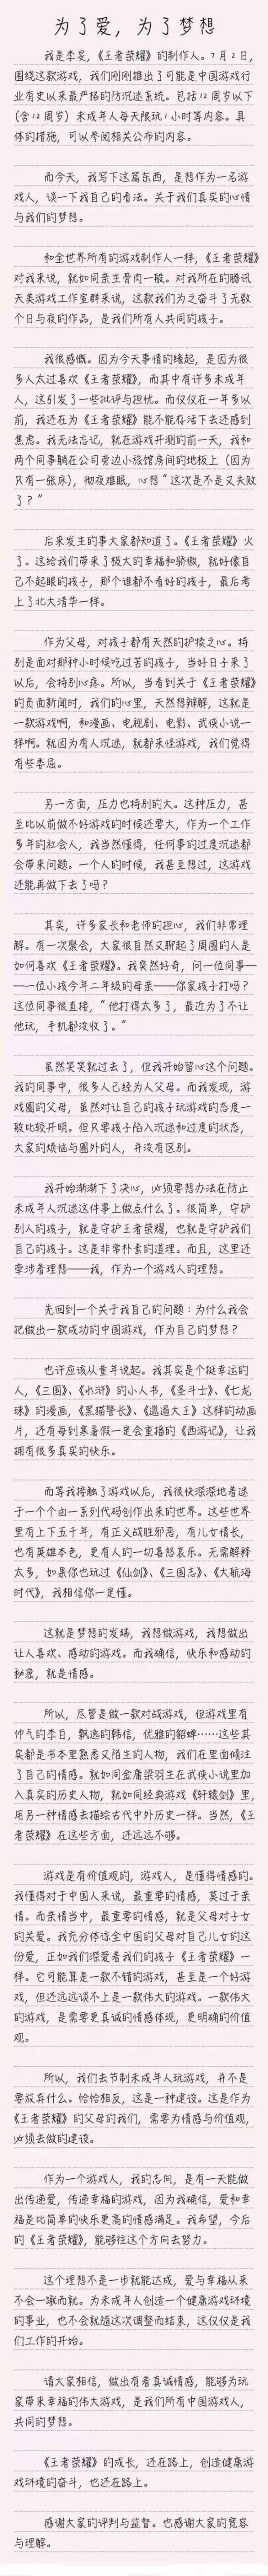 为了爱，为了梦想
我是李旻，《王者荣耀》的制作人。7月2日，
围绕这款游戏，我们刚刚推出了可能是中国游戏行
业有史以来最严格的防沉迷系统。包括12周岁以下
(含12周岁）未成年人每天限玩1小时等内容。具
体的措施，可以参阅相关公布的内容。
而今天，我写下这篇东西，是想作为一名游
戏人，谈一下我自己的看法。关于我们真实的心情
与我们的梦想。
和全世界所有的游戏制作人一样，《王者荣耀》
对我来说，就如同亲生骨肉一般。对我所在的腾讯
天美游戏工作室群来说，这款我们为之奋斗了无数
个日与夜的作品，是我们所有人共同的孩子。
我很感慨。因为今天事情的缘起，是因为很
多人太过喜欢《王者荣耀》，而其中有许多未成年
人，这引发了一些批评与担忧。而仅仅在一年多以
前，我还在为《王者荣耀》能不能存活下去还感到
焦虑。我无法忘记，就在游戏开测的前一天，我和
两个同事躺在公司旁边小旅馆房间的地板上（因为
只有一张床），彻夜难眠，心想“这次是不是又失败
了？”
后来发生的事大家都知道了。《王者荣耀》火
了。这给我们带来了极大的幸福和骄傲，就好像自
己不起眼的孩子，那个谁都不看好的孩子，最后考
上了北大清华一样。
作为父母，对孩子都有天然的护犊之心。特
别是面对那种小时候吃过苦的孩子，当好日子来了
以后，会特别心疼。所以，当看到关于《王者荣耀》
的负面新闻时，我们的心里，天然想辩解，这就是
一款游戏啊，和漫画、电视剧、电影、武侠小说一
样啊。就因为有人沉迷，就都来怪游戏，我们觉得
有些委屈。
另一方面，压力也特别的大。这种压力，甚
至比以前做不好游戏的时候还要大，作为一个工作
多年的社会人，我当然懂得，任何事的过度沉迷都
会带来问题。一个人的时候，我甚至想过，这游戏
还能再做下去了吗？
其实，许多家长和老师的担心，我们非常理
解。有一次聚会，大家很自然又聊起了周围的人是
如何喜欢《王者荣耀》。我突然好奇，问一位同事—
—一位小孩今年二年级的母亲——你家孩子打吗？
这位同事很直接，“他打得太多了，最近为了不让
他玩，手机都没收了。”
虽然笑笑就过去了，但我开始留心这个问题。
我的同事中，很多人已经为人父母。而我发现，游
戏圈的父母，虽然对让自己的孩子玩游戏的态度一
般比较开明。但只要孩子陷入沉迷和过度的状态，
大家的烦恼与圈外的人，并没有区别。
我开始渐渐下了决心，必须要想办法在防止
未成年人沉迷这件事上做点什么了。很简单，守护
别人的孩子，就是守护王者荣耀，也就是守护我们
自己的孩子。这是非常朴素的道理。而且，这里还
牵涉着理想——我，作为一个游戏人的理想。
先回到一个关于我自己的问题：为什么我会
把做出一款成功的中国游戏，作为自己的梦想？
也许应该从童年说起。我其实是个挺幸运的
人，《三国》、《水浒》的小人书，《圣斗士》、《七龙
珠》的漫画，《黑猫警长》、《邋遢大王》这样的动画
片，还有每到寒暑假一定会重播的《西游记》，让我
拥有很多真实的快乐。
而等我接触了游戏以后，我很快深深地着迷
于一个个由一系列代码创作出来的世界。这些世界
里有上下五千年，有正义战胜邪恶，有儿女情长，
也有英雄本色，更有人的一切喜怒哀乐。无需解释
太多，如果你也玩过《仙剑》、《三国志》、《大航海
时代》，我相信你一定懂。
这就是梦想的发端，我想做游戏，我想做出
让人喜欢、感动的游戏。而我确信，快乐和感动的
秘密，就是情感。
所以，尽管是做一款对战游戏，但游戏里有
帅气的李白，飘逸的韩信，优雅的貂蝉……这些其
实都是书本里熟悉又陌生的人物，我们在里面倾注
了自己的情感。就如同金庸梁羽生在武侠小说里加
入真实的历史人物，就如同经典游戏《轩辕剑》里，
用另一种情感去描绘古代中外历史一样。当然，《王
者荣耀》在这些方面，还远远不够。
游戏是有价值观的，游戏人，是懂得情感的。
我懂得对于中国人来说，最重要的情感，莫过于亲
情。而亲情当中，最重要的情感，就是父母对子女
的关爱。我充分体谅全中国的父母对自己儿女的这
份爱，正如我们深爱着我们的孩子《王者荣耀》一
样。它可能算是一款不错的游戏，甚至是一个好游
戏，但还远远谈不上是一款伟大的游戏。一款伟大
的游戏，是需要更真诚的情感体现，更明确的价值
观。
所以，我们去节制未成年人玩游戏，并不是
要放弃什么。恰恰相反，这是一种建设。这是作为
《王者荣耀》的父母的我们，需要为情感与价值观，
必须去做的建设。
作为一个游戏人，我的志向，是有一天能做
出传递爱，传递幸福的游戏，因为我确信，爱和幸
福是比简单的快乐更高的情感满足。我希望，今后
的《王者荣耀》，能够往这个方向去努力。
这个理想不是一步就能达成，爱与幸福从来
不会一蹴而就。为未成年人创造一个健康游戏环境
的事业，也不会就随这次调整而结束，这仅仅是我
们工作的开始。
请大家相信，做出有着真诚情感，能够为玩
家带来幸福的伟大游戏，是我们所有中国游戏人，
共同的梦想。
《王者荣耀》的成长，还在路上，创造健康游
戏环境的奋斗，也还在路上。
感谢大家的评判与监督。也感谢大家的宽容
与理解。